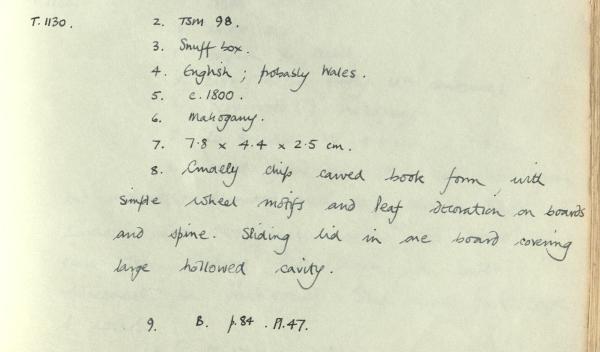 T.1130. 2. TSM 98.
3. Snuff box.
4. English ; probably Wales.
5. c.1800.
6. Mahogany.
7. 7.8 x 4.4 x 2.5 cm.
8. Crudely chip carved book form, with
simple wheel motifs and leaf decoration on boards
and spine. Sliding lid in one board covering
large hollowed cavity.
9. B. p.84. Pl.47.